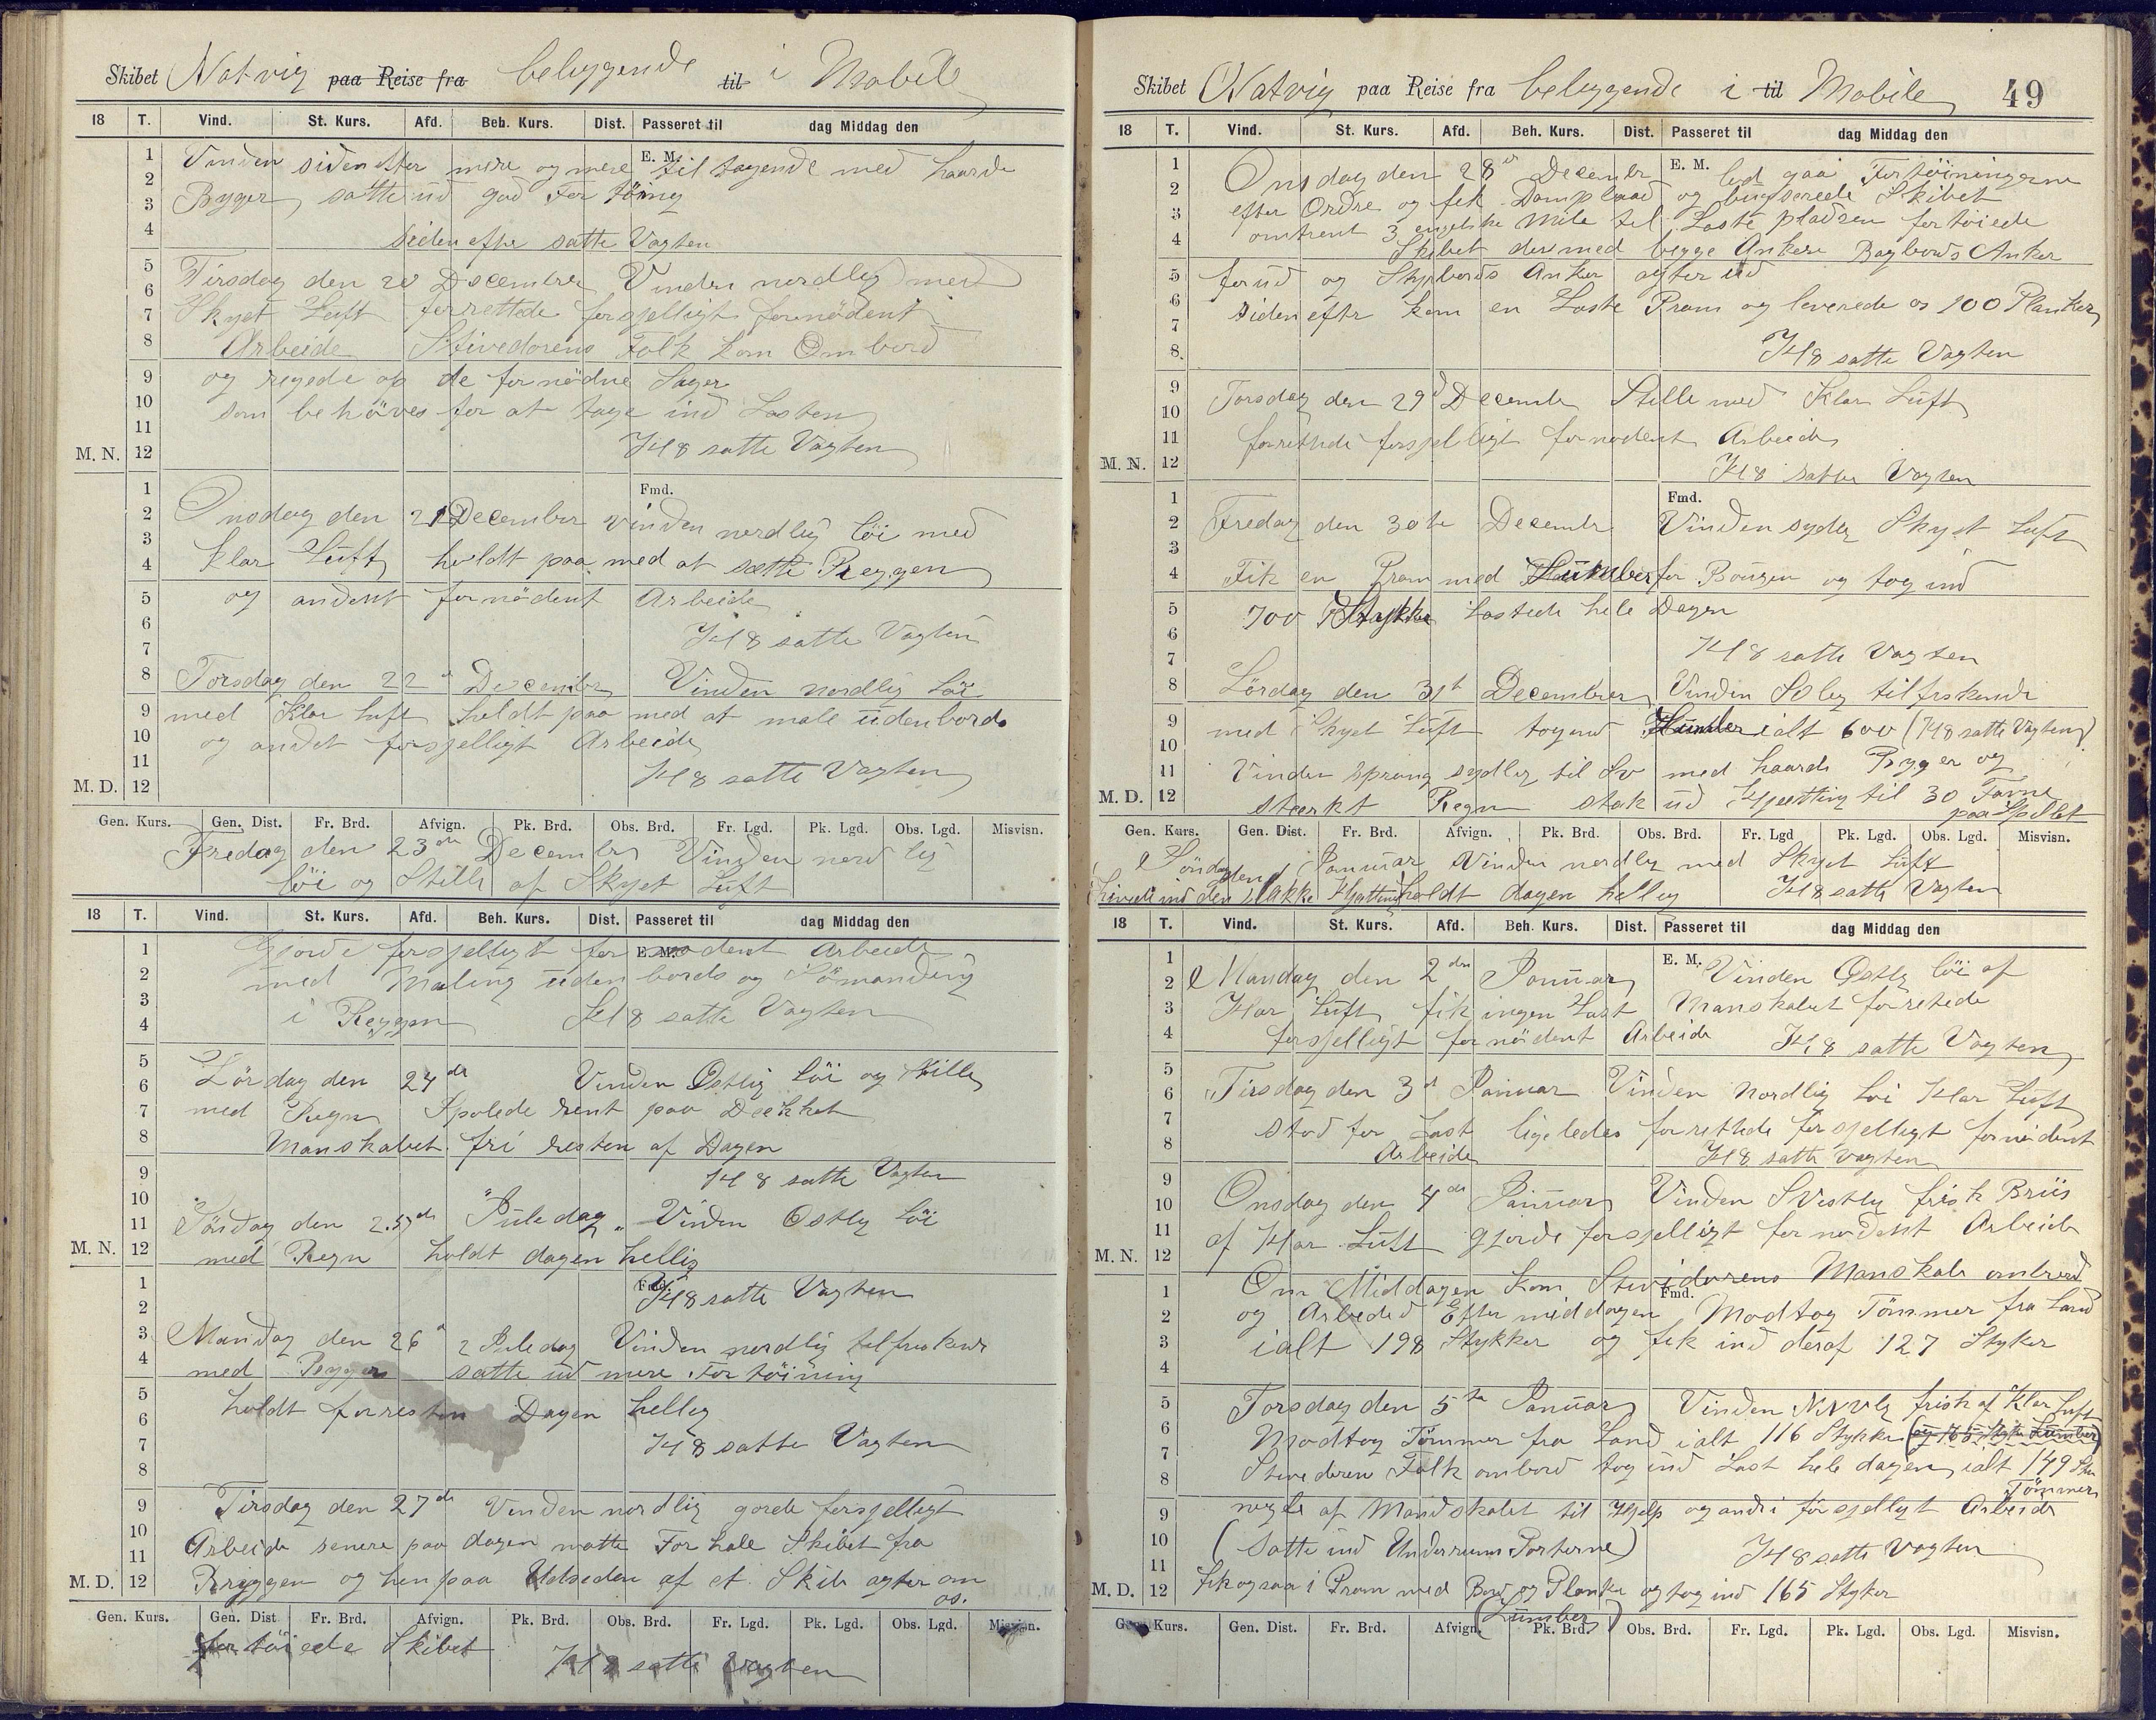 Skibet Natvig paa Reise fra beliggende til i Mobile
18 T. Vind. St. Kurs. Afd. Beh. Kurs. Dist. Passeret til dag Middag den
E. M.
1 Vinden sidenefter mere og mere til tagende med haarde
2
3 Byger satte ud god For töing
4 siden efter satte Vagten
5 Tirsdag den 20 December Vinden nordlig med
6
7 Skyet Luft forrettede forsjelligt fornödent
8 Arbeide Stivedorens Folk kom Ombord
9 og rigede op de fornödne Sager
10 som behöves for at tage ind Lasten
11
M. N. 12 Kl 8 satte Vagten
Fmd.
1
2 Onsdag den 21 December vinden nordlig löi med
3
4 klar Luft holdt paa med at sætte Reggen
5 og andent fornödent Arbeide
6
7 Kl 8 satte Vagten
8 Torsdag den 22 d December Vinden nordlig löi
9 med Klar luft holdt paa med at male udenbords
10 og andet forsjelligt Arbeide
11
M. D. 12 Kl 8 satte Vagten
Gen. Kurs. Gen. Dist. Fr. Brd. Afvign. Pk. Brd. Obs. Brd. Fr. Lgd. Pk. Lgd. Obs. Lgd. Misvisn.
Fredag den 23de December Vinden nord lig
löi og Stille af Skyet Luft
18 T. Vind. St. Kurs. Afd. Beh. Kurs. Dist. Passeret til dag Middag den
E. M.
1 Gjorde forsjelligt for nodent Arbeide
2 med Maling uden bords og Sömanding
3 i Reggen Kl 8 satte Vagten
4
5 Lördag den 24de Vinden Ostlig löi og stille
6
7 med Regn Spolede rent paa Dekket
8 Manskabet fri resten af Dagen
9 Kl 8 satte Vagten
10
11 Söndag den 25de "Juledag" Vinden Ostlig löi
M. N. 12 med Regn holdt dagen hellig
Fmd.
1 Kl 8 satte Vagten
2
3 Mandag den 26 d 2 Juledag Vinden nordlig tilfriskende
4 med Byger satte ud mere For töining
5 holdt forresten Dagen hellig
6
7 Kl 8 satte Vagten
8
9 Tirsdag den 27de Vinden nordlig gorde forsjelligt
10 Arbeide senere paa dagen matte For hale Skibet fra
11
M. D. 12 Bryggen og hen paa Udseden af et Skib agter om
os.
Gen. Kurs. Gen. Dist Fr. Brd. Afvign. Pk. Brd. Obs. Brd. Fr. Lgd. Pk. Lgd. Obs. Lgd. Misvisn.
for töiede Skibet
Kl 8 satte Vagten
Skibet Natvig paa Reise fra beliggende i til Mobile 49
18 T. Vind. St. Kurs. Afd. Beh. Kurs. Dist. Passeret til dag Middag den
E. M.
1 Onsdag den 28d December lod gaa Fortöiningerne
2 efter Ordre og fik Dampbaad og bugserede Skibet
3 omtrent 3 engelske Mile til Laste pladsen fortöiede
4 Skibet der med begge Ankere Bagbords Anker
5 forud og Styrbords Anker agter ud
6 siden efter kom en Laste Pram og leverede os 100 Planker
7
8 Kl 8 satte Vagten
9 Torsdag den 29d December Stille med Klar Luft
10
11 forrettede forsjelligt fornodent Arbeide
M. N. 12 Kl 8 satte Vagten
Fmd.
1
2 Fredag den 30te December Vinden sydlig Skyet Luft
3
4 Fik en Pram med Lumber for Bougen og tog ind
5 700 Stykker Lastede hele Dagen
6
7 Kl 8 satte Vagten
8 Lördag den 31t December Vinden SOlig tilfriskende
9 med Skyet Luft tog ind Lumber ialt 600 (Kl 8 satte Vagten)
10
11 Vinden sprang sydlig til Sv med haarde Byger og
M. D. 12 stærkt Regn stak ud Kjætting til 30 Favne
paa Spillet
Gen. Kurs. Gen. Dist. Fr. Brd. Afvign. Pk. Brd. Obs. Brd. Fr. Lgd Pk. Lgd. Obs. Lgd. Misvisn.
Söndag den 1 Januar Vinden nordlig med Skyet Luft
hivede ind den slakke Kjætting holdt dagen hellig Kl 8 satte Vagten
18 T. Vind. St. Kurs. Afd. Beh. Kurs. Dist. Passeret til dag Middag den
E. M.
1
2 Mandag den 2den Januar Vinden Ostlig löi af
3 Klar Luft fik ingen Last Manskabet forretede
4 forsjelligt fornödent Arbeide Kl 8 satte Vagten
5
6 Tirsdag den 3d Januar Vinden Nordlig löi Klar Luft
7 stod for Last ligeledes forrettede forsjelligt fornödent
8 Arbeide Kl 8 satte Vagten
9
10 Onsdag den 4de Januar Vinden SVestlig frisk Briis
11 af Klar Luft gjorde forsjelligt fornodent Arbeide
M. N. 12
Fmd.
1 Om Middagen kom Stevidorens Manskab ombord
2 og Arbeided Efter middagen Modtog Tömmer fra Land
3 ialt 198 Stykker og fik ind deraf 127 Styker
4
5 Torsdag den 5te Januar Vinden NNVlg frisk af Klar Luft
6 Modtog Tömmer fra Land ialt 116 Stykker (og 165 Styker Lumber)
7
8 Stevedoren Folk ombord tog ind Last hele dagen ialt 149 Stk
Tömmer
9 nogle af Mandskabet til Hjelp og andre forsjelligt Arbeide
10 (satte ind Underrums Porterne) Kl 8 satte Vagten
11
M. D. 12 fik ogsaa 1 Pram med Bord og Planke og tog ind 165 Styker
(Lumber)
Gen. Kurs. Gen. Dist. Fr. Brd. Afvign. Pk. Brd. Obs. Brd. Fr. Lgd. Pk. Lgd. Obs. Lgd. Misvisn.